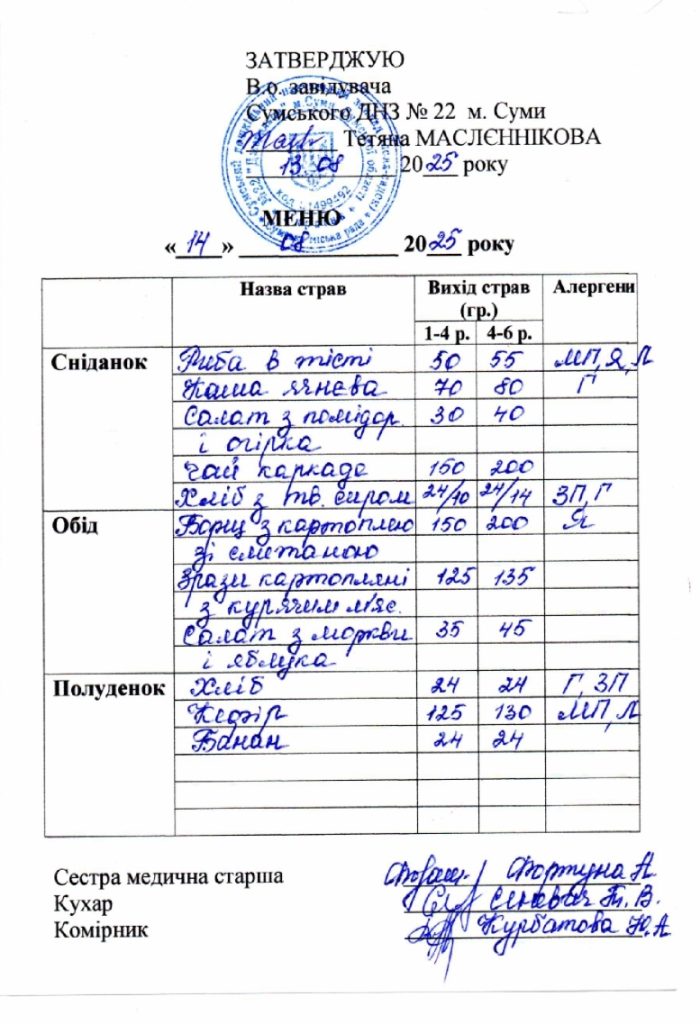 ЗАТВЕРДЖУЮ
В.о. завідувача
Сумського ДНЗ № 22 м. Суми
Тетяна МАСЛЄННІКОВА
13 08 2025 року
МЕНЮ
«14» 08 2025 року
Назва страв Вихід страв (гр.) Алергени
1-4 р. 4-6 р.
Сніданок Риба в тісті 50 55 МП, Я, Л
Каша ячнева 70 80 Г
Салат з помідор 30 40
і огірка
Чай каркаде 150 200
Хліб з тв. сиром 24/10 24/14 ЗП, Г
Обід Борщ з картоплею 150 200 Я
зі сметаною
Зрази картопляні 125 135
з курячим м'яс.
Салат з моркви 35 45
і яблука
Полуденок Хліб 24 24 Г, ЗП
Кефір 125 130 МП, Л
Банан 24 24
Сестра медична старша Фортуна А.
Кухар Т. В.
Комірник Курбатова Ю.А